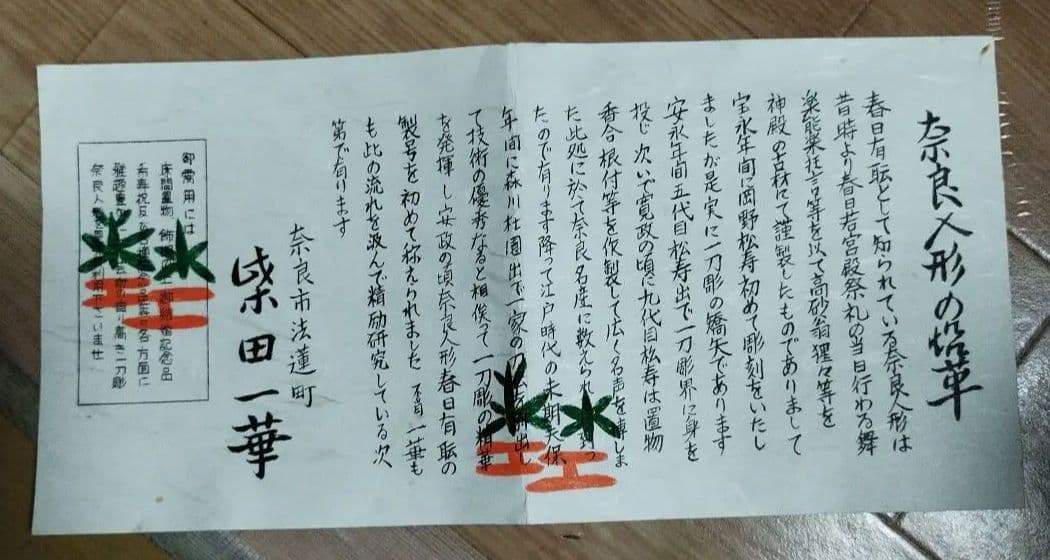 奈良人形の沿革
春日有職として知られている奈良人形は
昔時より春日若宮殿祭礼の当日行わる舞
楽能楽狂言等を以て高砂翁猩々等を
神殿の古材にて謹製したものでありまして
宝永年間に岡野松寿初めて彫刻をいたし
ましたが是実に一刀彫の嚆矢であります
安永年間五代目松寿出で一刀彫界に身を
投じ次いで寛政の頃に九代目松寿は置物
香合根付等を作製して広く名声を博しま
た此処に於て奈良名産に数えられ
たので有ります降って江戸時代の末期天保
年間に森川杜園出で一家の刀法を
て技術の優秀なると相俟って一刀彫の精華
を発揮し安政の頃奈良人形春日有職の
製号を初めて称えられました 不肖一華も
も此の流れを汲んで精励研究している次
第で有ります
奈良市法蓮町
柴田一華
御需用には
床間置物 飾 記念品
方面に
雅趣 高き一刀彫
奈良人形 下さいませ